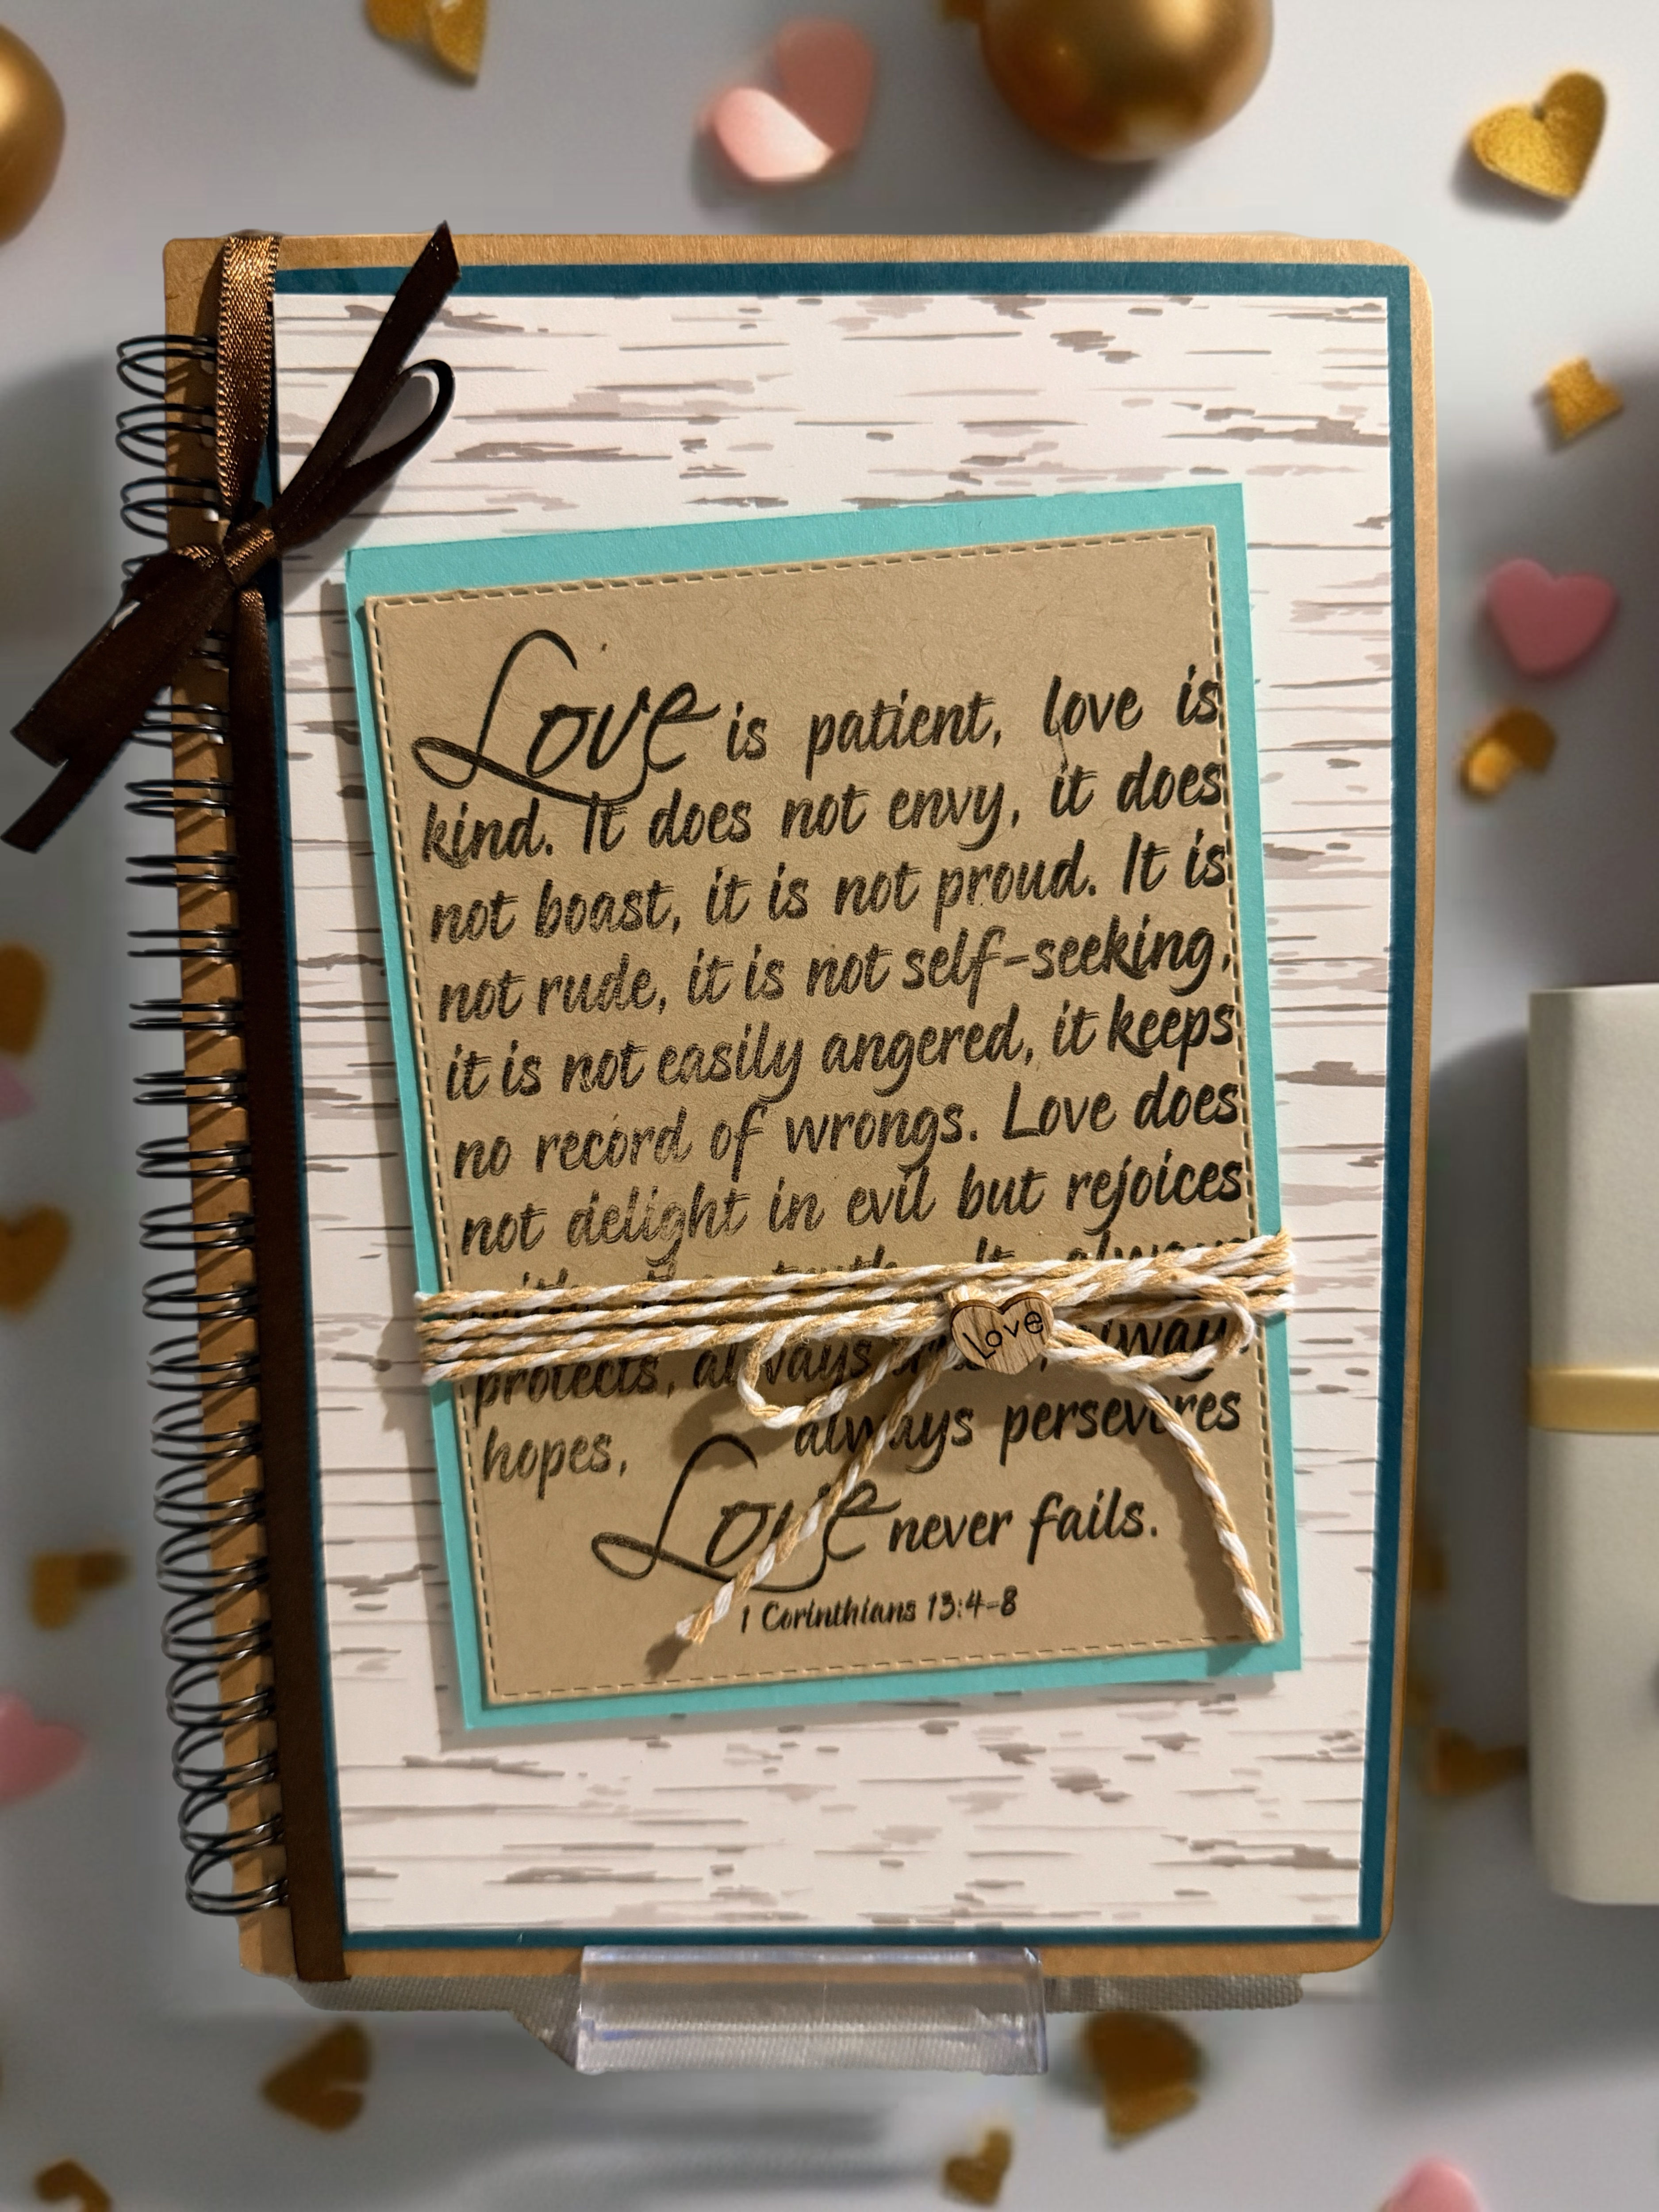 Love is patient, love is
kind. It does not envy, it does
not boast, it is not proud. It is
not rude, it is not self-seeking,
it is not easily angered, it keeps
no record of wrongs. Love does
not delight in evil but rejoices
with the truth. It always
protects, always always
Love
hopes, always perseveres
Love never fails.
1 Corinthians 13:4-8